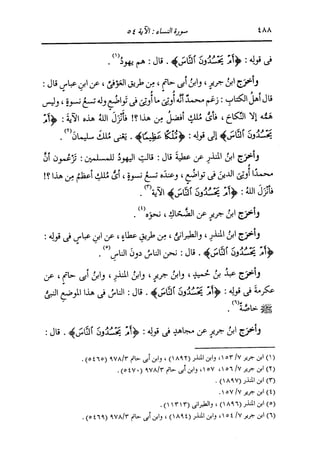 ٤٨٨
سورة النساء : الآية ٥٤
فى قوله : ﴿أَمْ يَحْسُدُونَ ٱلنَّاسَ﴾ . قال : هم يهودُ(١) .
وأخرَج ابنُ جريرٍ ، وابنُ أبى حاتمٍ ، مِن طريقِ العَوْفىِّ ، عن ابنِ عباسٍ قال :
قال أهلُ الكتابِ : زعَم محمدٌ أنَّه أُوتىَ ما أُوتىَ فى تواضُعٍ وله تسعُ نسوةٍ ، وليس
همُّه إلا النكاحَ ، فأىُّ مُلكٍ أفضلُ مِن هذا ؟! فأنزَل اللهُ هذه الآيةَ : ﴿أَمْ
يَحْسُدُونَ ٱلنَّاسَ﴾ إلى قولِه : ﴿مُّلْكًا عَظِيمًا﴾ . يعنى مُلكَ سليمانَ(٢) .
وأخرَج ابنُ المنذرِ عن عطيةَ قال : قالتِ اليهودُ للمسلمين : تزعُمون أنَّ
محمدًا أُوتىَ الدينَ فى تواضُعٍ ، وعندَه تسعُ نسوةٍ ، أىُّ مُلكٍ أعظمُ مِن هذا ؟!
فأنزَل اللهُ : ﴿أَمْ يَحْسُدُونَ ٱلنَّاسَ﴾ الآية(٣) .
وأخرَج ابنُ جريرٍ عن الضحَّاكِ ، نحوَه(٤) .
وأخرَج ابنُ المنذرِ ، والطبرانىُّ ، مِن طريقِ عطاءٍ ، عن ابنِ عباسٍ فى قولِه :
﴿أَمْ يَحْسُدُونَ ٱلنَّاسَ﴾ . قال : نحن الناسُ دونَ الناسِ(٥) .
وأخرَج عبدُ بنُ حُميدٍ ، وابنُ جريرٍ ، وابنُ المنذرِ ، وابنُ أبى حاتمٍ ، عن
عكرمةَ فى قولِه : ﴿أَمْ يَحْسُدُونَ ٱلنَّاسَ﴾ . قال : الناسُ فى هذا الموضعِ النبىُّ
ﷺ خاصةً(٦) .
وأخرَج ابنُ جريرٍ عن مجاهدٍ فى قولِه : ﴿أَمْ يَحْسُدُونَ ٱلنَّاسَ﴾ . قال :
(١) ابن جرير ٧/ ١٥٣، وابن المنذر (١٨٩٢) ، وابن أبى حاتم ٩٧٨/٣ (٥٤٦٥) .
(٢) ابن جرير ٧/ ١٥٦، ١٥٧، وابن أبى حاتم ٩٧٨/٣ (٥٤٧٠) .
(٣) ابن المنذر (١٨٩٧) .
(٤) ابن جرير ٧/ ١٥٧.
(٥) ابن المنذر (١٨٩٦) ، والطبرانى (١١٣١٣) .
(٦) ابن جرير ٧/ ١٥٤، وابن المنذر (١٨٩٤) ، وابن أبى حاتم ٩٧٨/٣ (٥٤٦٩) .